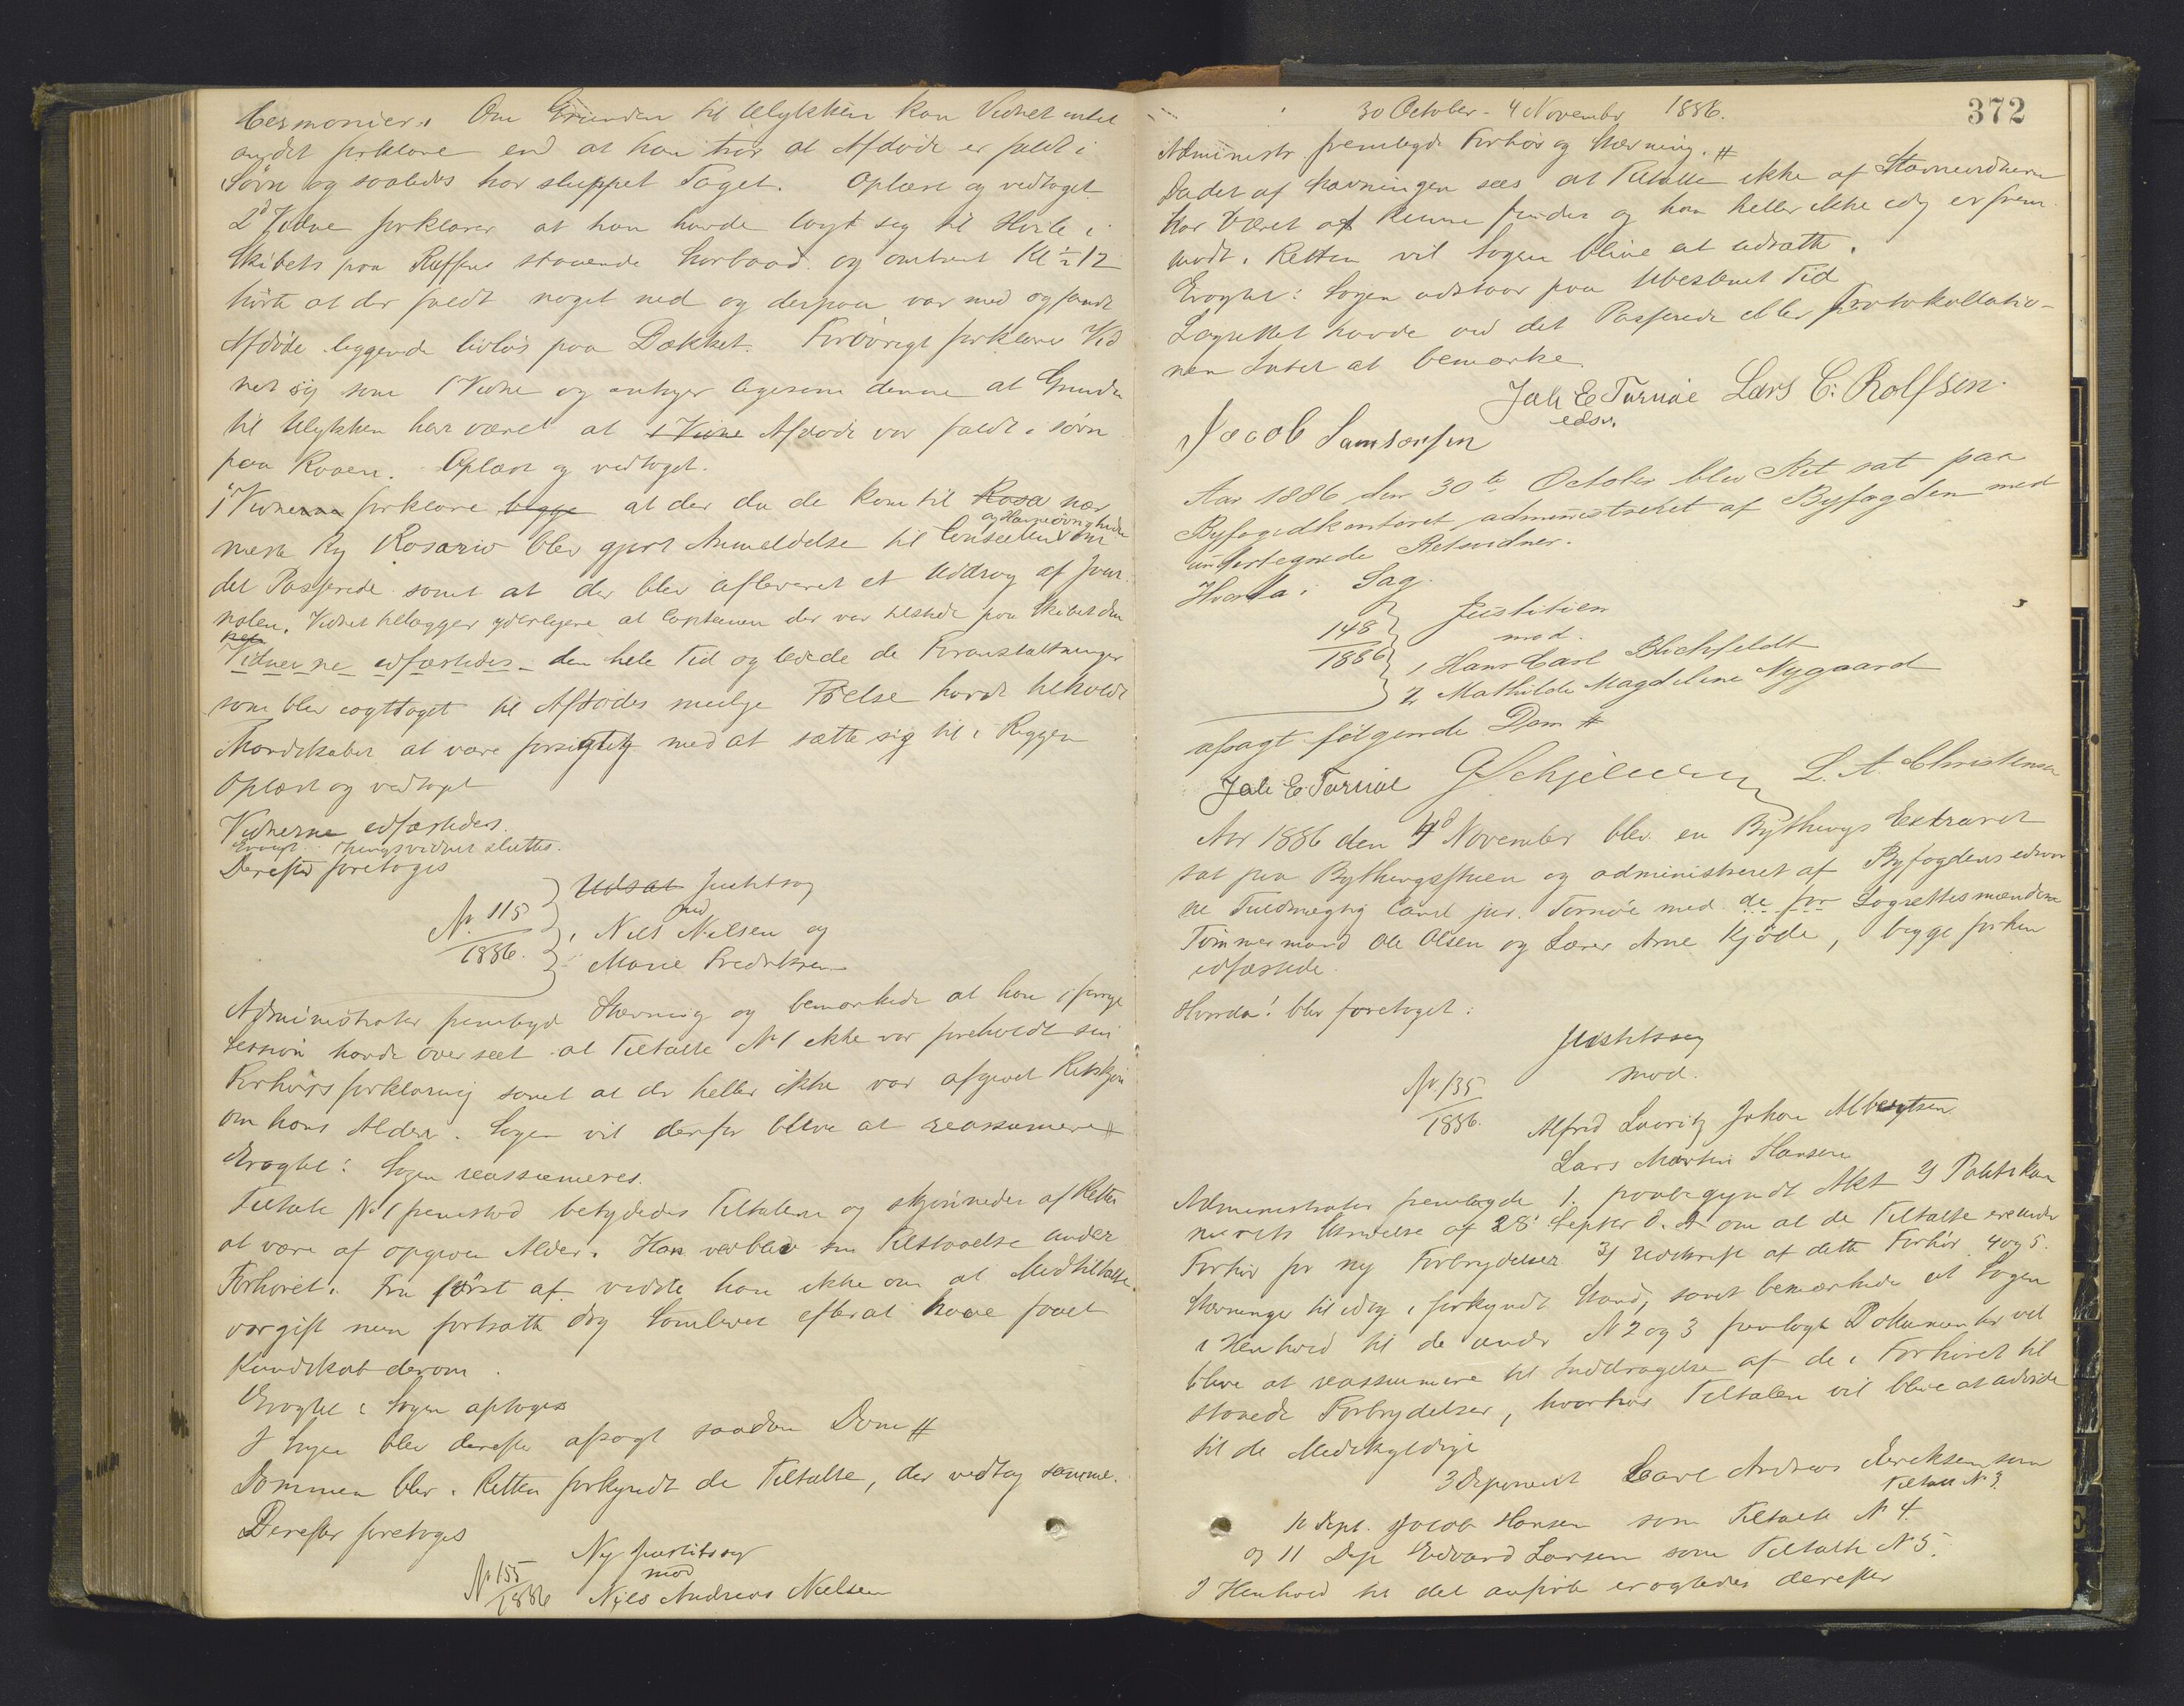 Cermonier. Om Grunden til Ulykken kan Vidnet intet
andet forklare end at han tror at Afdøde er faldt i
Søvn og saaledes har sluppet Taget. Oplæst og vedtaget
2d Vidne forklarer at han havde lagt sig til Hvile i
Skibets paa Ruffens staaende Storbaad og omtrent Kl ½ 12
hørte at der faldt noget ned og derpaa var med og fandt
Afdøde liggende livløs paa Dækket. Forøvrigt forklarer Vid
net sig som 1 Vidne og antager ligesom denne at Grunden
til Ulykken har været at 1 Vidne Afdøde var faldt i Søvn
paa Raaen. Oplæst og vedtaget.
1 Vidnerne forklare begge at der da de kom til Rosa nær
og Havneøvrigheden
meste By Rosario blev gjort Anmeldelse til Consulen om
det Passerede samt at der blev afleveret et Uddrag af Jour
nalen. Vidnet tilægger yderligere at Capteinen der var tilstede paa Skibet den
Vidnerne edfæstedes. den hele Tid og ledede de Foranstaltninger
som blev iagttaget til Afdødes mulige Frelse havde tilholdt
Mandskabet at være forsigtig med at sætte sig til i Riggen
Oplæst og vedtaget
Vidnerne edfæstedes.
Eragt. Thingsvidnet sluttes.
Derefter foretoges
Udsat Justitssag
No. 115
mod
1886.
1 Nils Nilsen og
2 Marie Fredriksen
Administrator fremlagde Stævning og bemærkede at han i forrige
Session havde overseet at Tiltalte No 1 ikke var foreholdt sin
Forhørsforklaring samt at der heller ikke var afgivet Retskjøn
om hans Alder. Sagen vil derfor blive at reassumere #
Eragtet: Sagen reassumeres.
Tiltalte No 1 fremstod betydedes Tiltalen og skjønnedes af Retten
at være af opgiven Alder. Han vedblev sin Tilstaaelse under
Forhøret. Fra først af vidste han ikke om at Medtiltalte
var gift men fortsatte dog Samlivet efterat have faaet
Kundskab derom.
Eragtet: Sagen optages
I Sagen blev derefter afsagt saadan Dom #
Dommen blev i Retten forkyndt de Tiltalte, der vedtog samme.
Derefter foretoges
Ny Justitssag
No 155
mod
1886
Niels Andreas Nielsen
30 October - 4 November 1886.
372
Administr. fremlagde Forhør og Stævning. #
Da det af Stævningen sees at Tiltalte ikke af Stævnevidnerne
har været at kunne findes og han heller ikke idag er frem
mødt i Retten vil Sagen blive at udsætte.
Eragtet: Sagen udstaar paa Ubestemt Tid
Lagrettet havde ved det Passerede eller Protokollatio-
nen Intet at bemærke
Joh E Tornøe Lars C. Rolfsen.
edsv.
Jacob Samsonsen
Aar 1886 den 30te October blev Ret sat paa
Byfogedkontoret administreret af Byfogden med
undertegnede Retsvidner.
Hvorda i Sag
148
Justitien
mod.
1886
1 Hans Carl Blichfeldt
2 Mathilde Magdalene Nygaard
afsagt følgende Dom #
Joh E. Tornøe G Schjelderup L. A. Christensen
Aar 1886 den 4d November blev en Bythings Extraret
sat paa Bythingsstuen og administreret af Byfogdens edsvor
ne Fuldmægtig Cand jur. Tornøe med de for Lagrettesmændene
Tømmermand Ole Olsen og Lærer Arne Kjøde, begge forhen
edfæstede.
Hvorda! blev foretaget:
Justitssag
mod.
No. 135
1886.
Alfred Lauritz Johan Albertsen
Lars Martin Hansen
Administrator fremlagde 1. paabegyndt Akt 2) Politikam
merets Skrivelse af 28' Septbr d. A om at de Tiltalte ere under
Forhør for ny Forbrydelser 3) Udskrift af dette Forhør 4 og 5.
Stævninger til idag i forkyndt Stand, samt bemærkede at Sagen
i Henhold til de under No 2 og 3 fremlagte Dokumenter vil
blive at reassumere til Inddragelse af de i Forhøret til
staaede Forbrydelser, hvorhos Tiltalen vil blive at udvide
til de Medskyldige
3 Deponent Carl Andreas Eriksen som
Tiltalt No 3
10 Dept. Jacob Hansen som Tiltalte No 4.
og 11 Dep Edvard Larsen som Tiltalte No 5.
I Henhold til det anførte eragtedes derefter